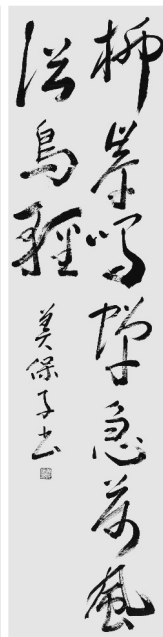 柳鳴蝉急荷風
浴鳥輕
美保子書